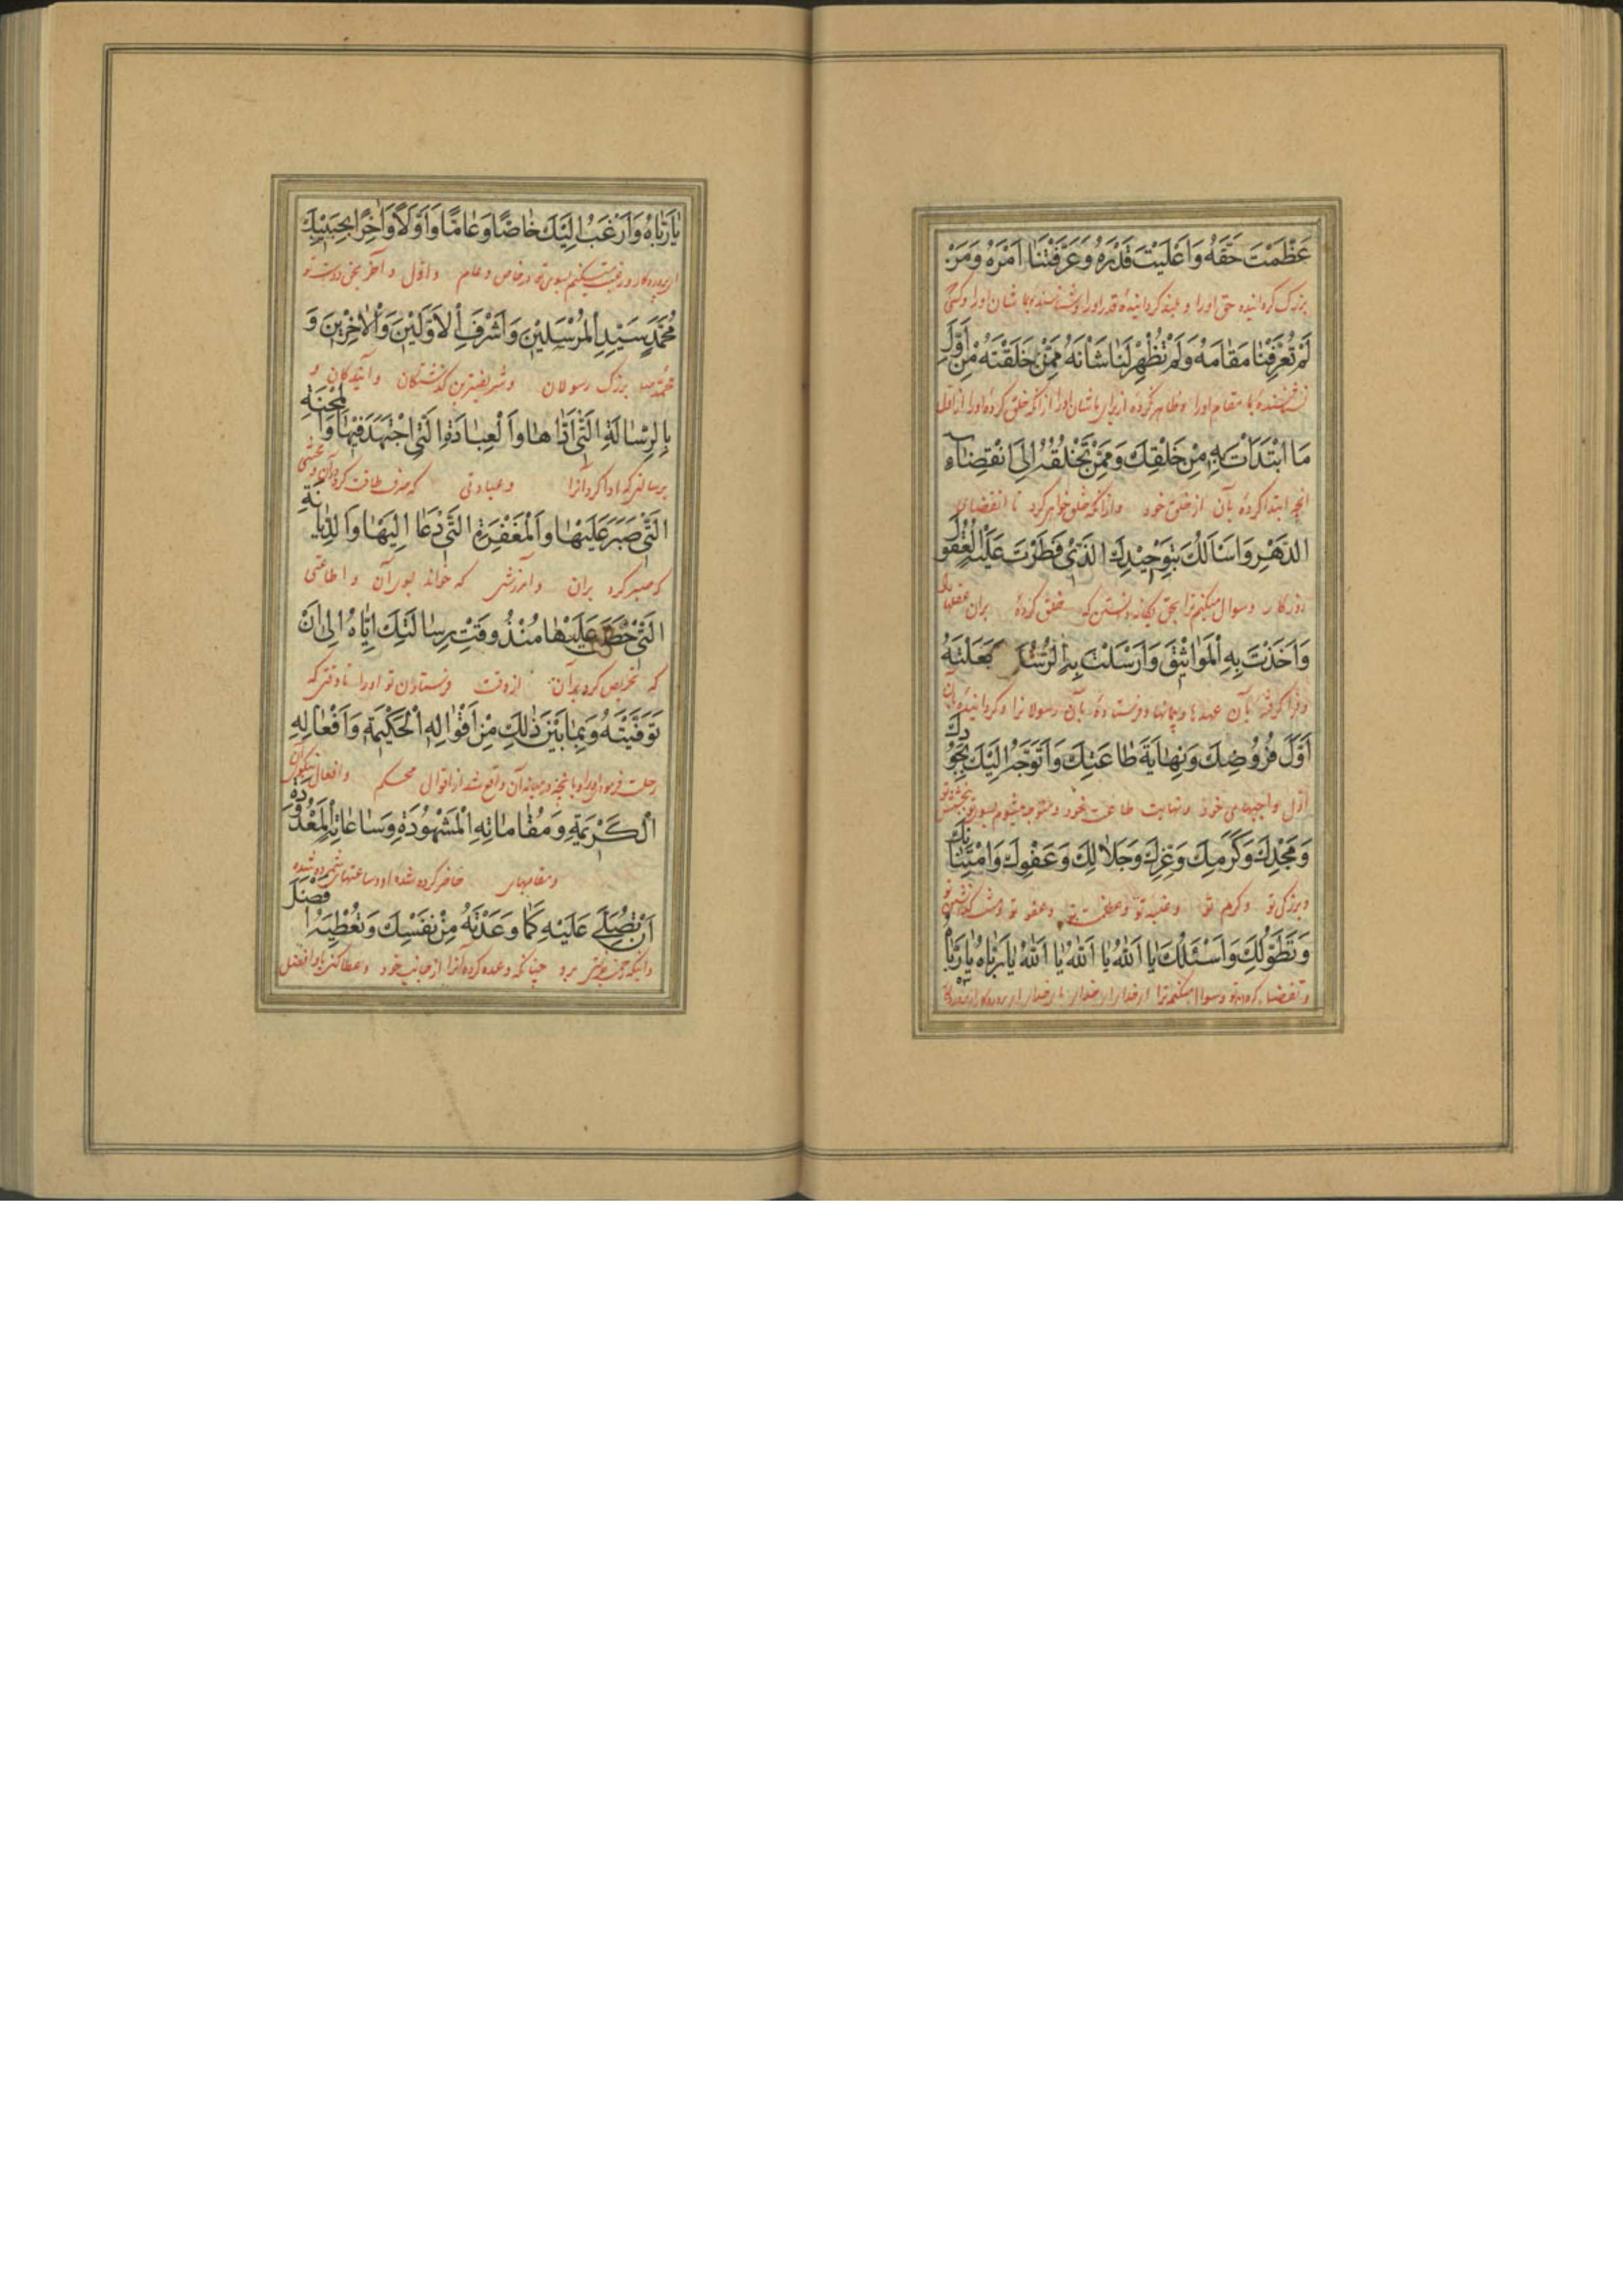 عَظَّمْتَ حَقَّهُ وَاَعْلَيْتَ قَدْرَهُ وَعَرَّفْتَنَا اَمْرَهُ وَمَنْ
بزرگ گردانیده حق اورا و بلند گردانیده قدر اورا و شناسنده بما شان اورا و کسی
لَمْ تُعَرِّفْنَا مَقَامَهُ وَلَمْ تُظْهِرْ لَنَا شَاْنَهُ مِمَّنْ خَلَقْتَهُ مِنْ اَوَّلِ
مقام اورا و ظاهر نکردهٔ از برای ما شان اورا از آنکه خلق کردهٔ اورا از اول
مَا ابْتَدَاْتَ بِهِ مِنْ خَلْقِكَ وَمِمَّنْ تَخْلُقُهُ اِلَى انْقِضَاءِ
انچه ابتدا کردهٔ بآن از خلق خود و از آنکه خلق خواهی کرد تا انقضای
الدَّهْرِ وَاَسْاَلُكَ بِتَوْحِيْدِكَ الَّذِىْ فَطَرْتَ عَلَيْهِ الْعُقُولَ
روزگار و سوال میکنم ترا بحق یگانه دانستن که خلق کردهٔ بران عقلها را
وَاَخَذْتَ بِهِ الْمَوَاثِيْقَ وَاَرْسَلْتَ بِهِ الرُّسُلَ جَعَلْتَهُ
و فرا گرفتهٔ بآن عهدها و پیمانها و فرستادهٔ بآن رسولانرا و گردانیدهٔ آن
اَوَّلَ فُرُوضِكَ وَنِهَايَةَ طَاعَتِكَ وَاَتَوَجَّهُ اِلَيْكَ بِجُوْدِكَ
اول واجبهای خود و نهایت طاعت خود و متوجه میشوم بسوی تو
وَمَجْدِكَ وَكَرَمِكَ وَعِزِّكَ وَجَلَالِكَ وَعَفْوِكَ وَامْتِنَانِكَ
و بزرگی تو و کرم تو و غلبه تو و عظمت تو و عفو تو و
وَتَطَوُّلِكَ وَاَسْئَلُكَ يَا اَللهُ يَا اَللهُ يَا اَللهُ يَا رَبَّاهُ يَا رَبَّاهُ
و تو و سوال میکنم ترا ای خدا ای خدا ای خدا ای
يَا رَبَّاهُ وَاَرْغَبُ اِلَيْكَ خَاصًّا وَعَامًّا وَاَوَّلًا وَاٰخِرًا بِحَبِيْبِكَ
ای پروردگار و رغبت میکنم بسوی تو در خاص و عام و اول و آخر بحق دوست تو
مُحَمَّدٍ سَيِّدِ الْمُرْسَلِيْنَ وَاَشْرَفِ الْاَوَّلِيْنَ وَالْاٰخِرِيْنَ وَ
محمد بزرگ رسولان و شریفترین گذشتگان و آیندگان و
بِالرِّسَالَةِ الَّتِىْ اَدَّاهَا وَالْعِبَادَةِ الَّتِى اجْتَهَدَ فِيْهَا وَالْمِحْنَةِ
برسالتی که ادا کرد آنرا و عبادتی که صرف طاقت کرد در آن و محنتی
الَّتِىْ صَبَرَ عَلَيْهَا وَالْمَغْفِرَةِ الَّتِىْ دَعَا اِلَيْهَا وَالدِّيَانَةِ
که صبر کرد بران و آمرزشی که خواند بسوی آن و اطاعتی
الَّتِىْ عَلَيْهَا مُنْذُ وَقْتِ رِسَالَتِكَ اِيَّاهُ اِلَى اَنْ
که تحریص کرد بر آن از وقت فرستادن تو اورا تا وقتی که
تَوَفَّيْتَهُ وَبِمَا بَيْنَ ذٰلِكَ مِنْ اَقْوَالِهِ الْحَكِيْمَةِ وَاَفْعَالِهِ
رحلت فرمودی اورا و بانچه در میانه آن واقع شد از اقوال محکم و افعال نیکوی
الْكَرِيْمَةِ وَمَقَامَاتِهِ الْمَشْهُوْدَةِ وَسَاعَاتِهِ الْمَعْدُوْدَةِ
و مقامهای حاضر کرده شده او و ساعتهای شمرده شده
اَنْ تُصَلِّىَ عَلَيْهِ كَمَا وَعَدْتَهُ مِنْ نَفْسِكَ وَتُعْطِيَهُ اَفْضَلَ
و اینکه رحمت برو چنانکه وعده کردهٔ آنرا از جانب خود و عطا کنی باو افضل